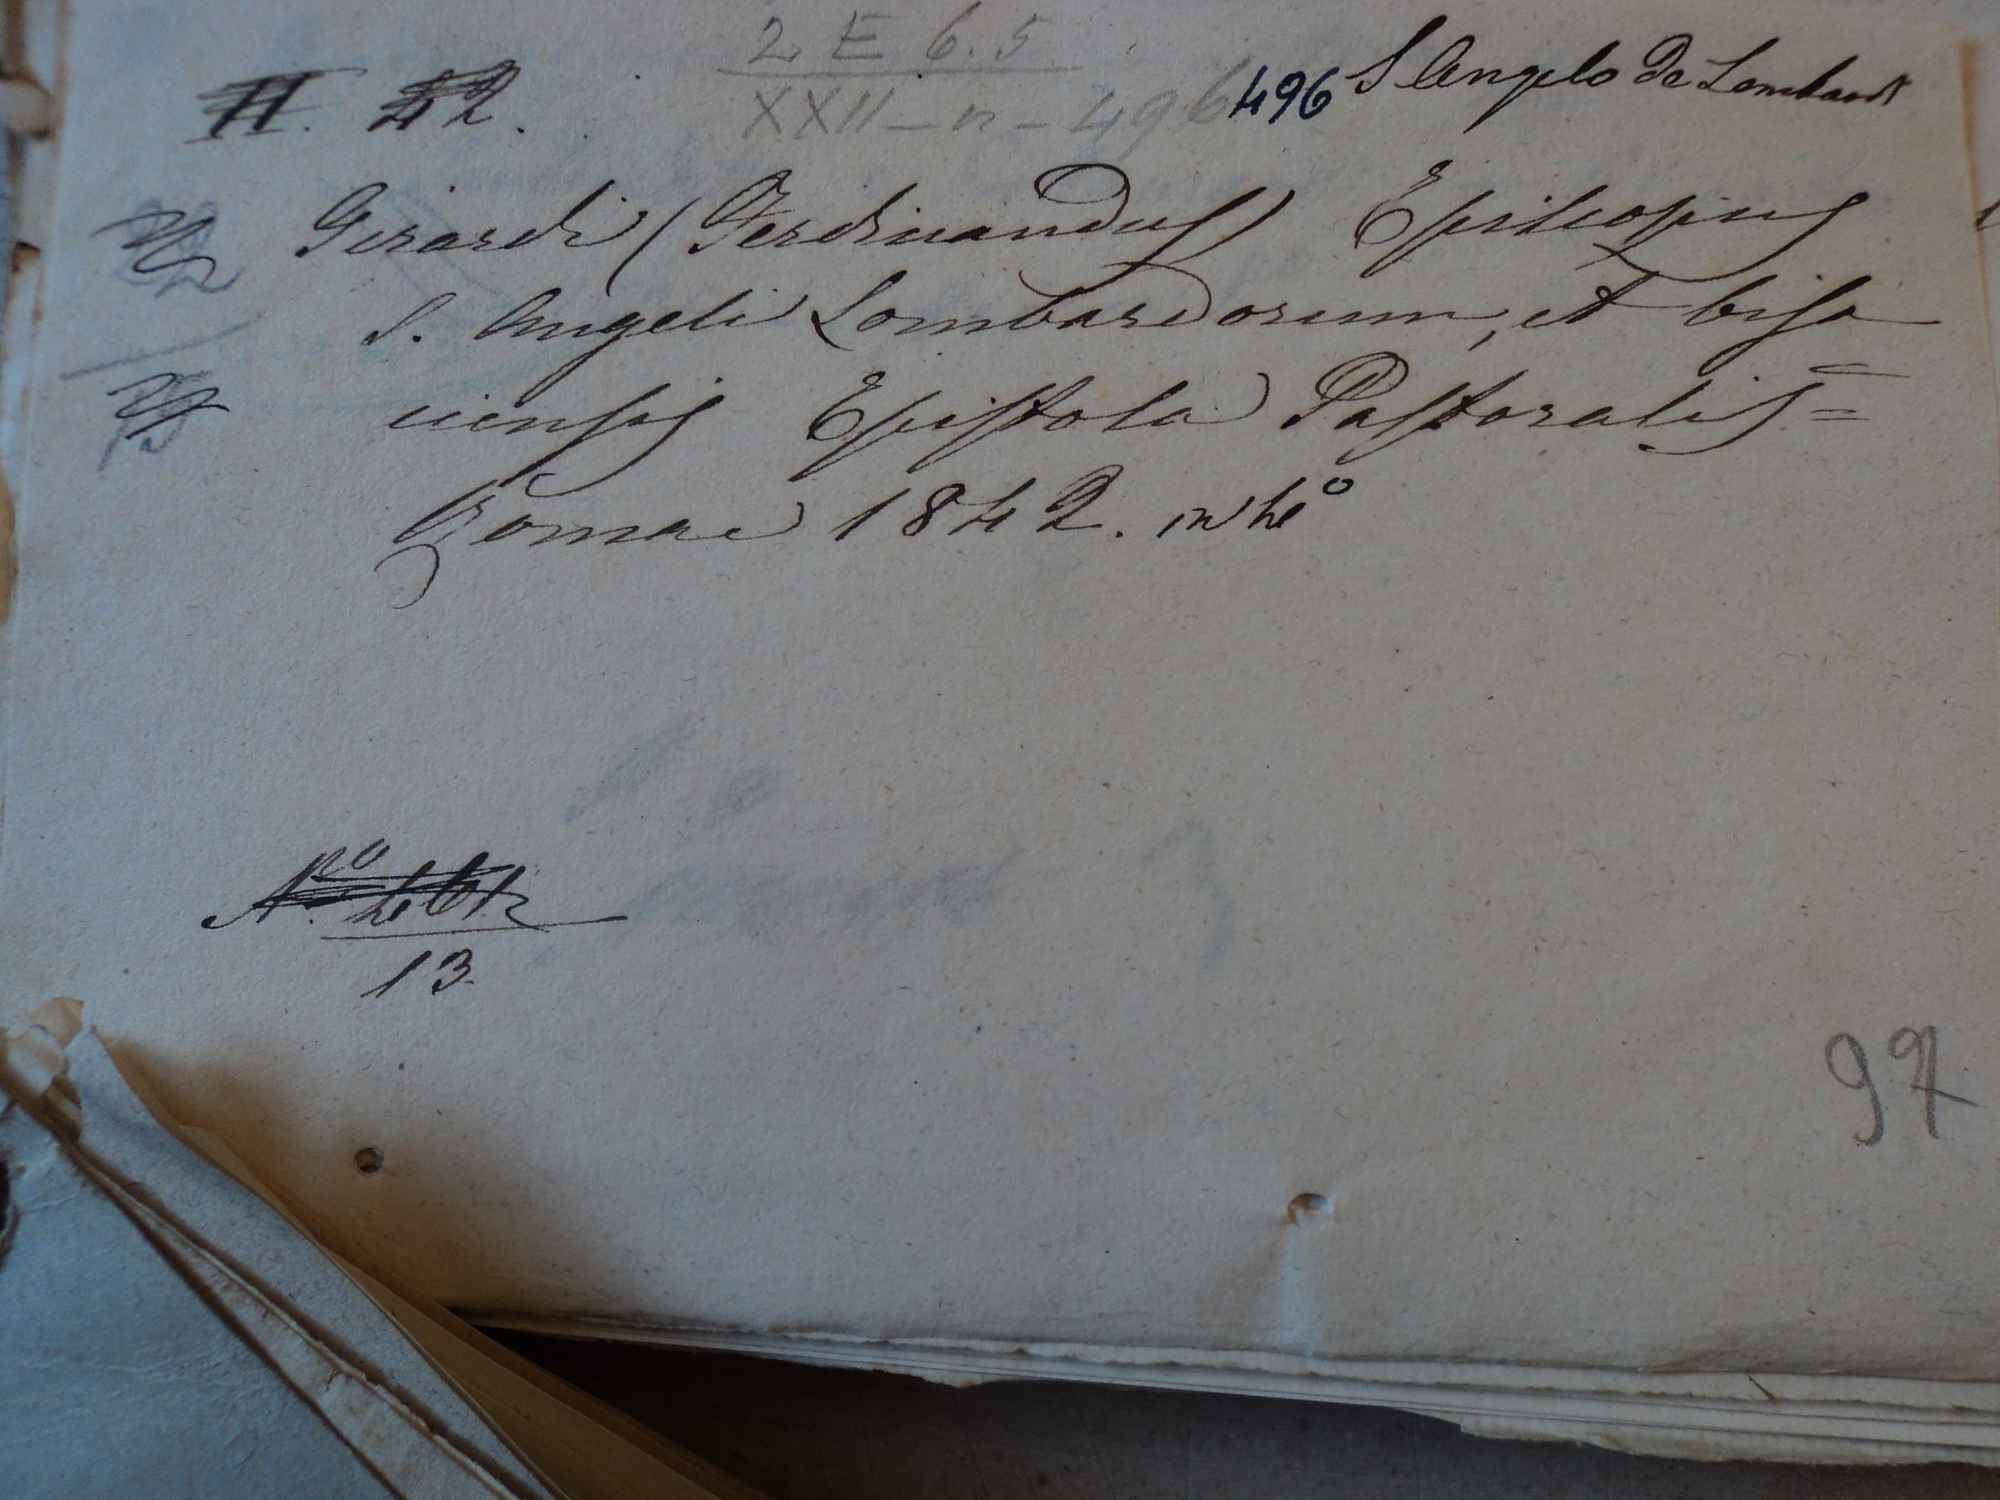 2 E 6.5
H. 42.
XXII - n - 496
496 S Angelo de Lombardi
Girardi (Ferdinandus) Episcopus
S. Angeli Lombardorum, et bisa
ciensis Epistola Pastoralis =
Romae 1842. in 4°
N.º
13.
97